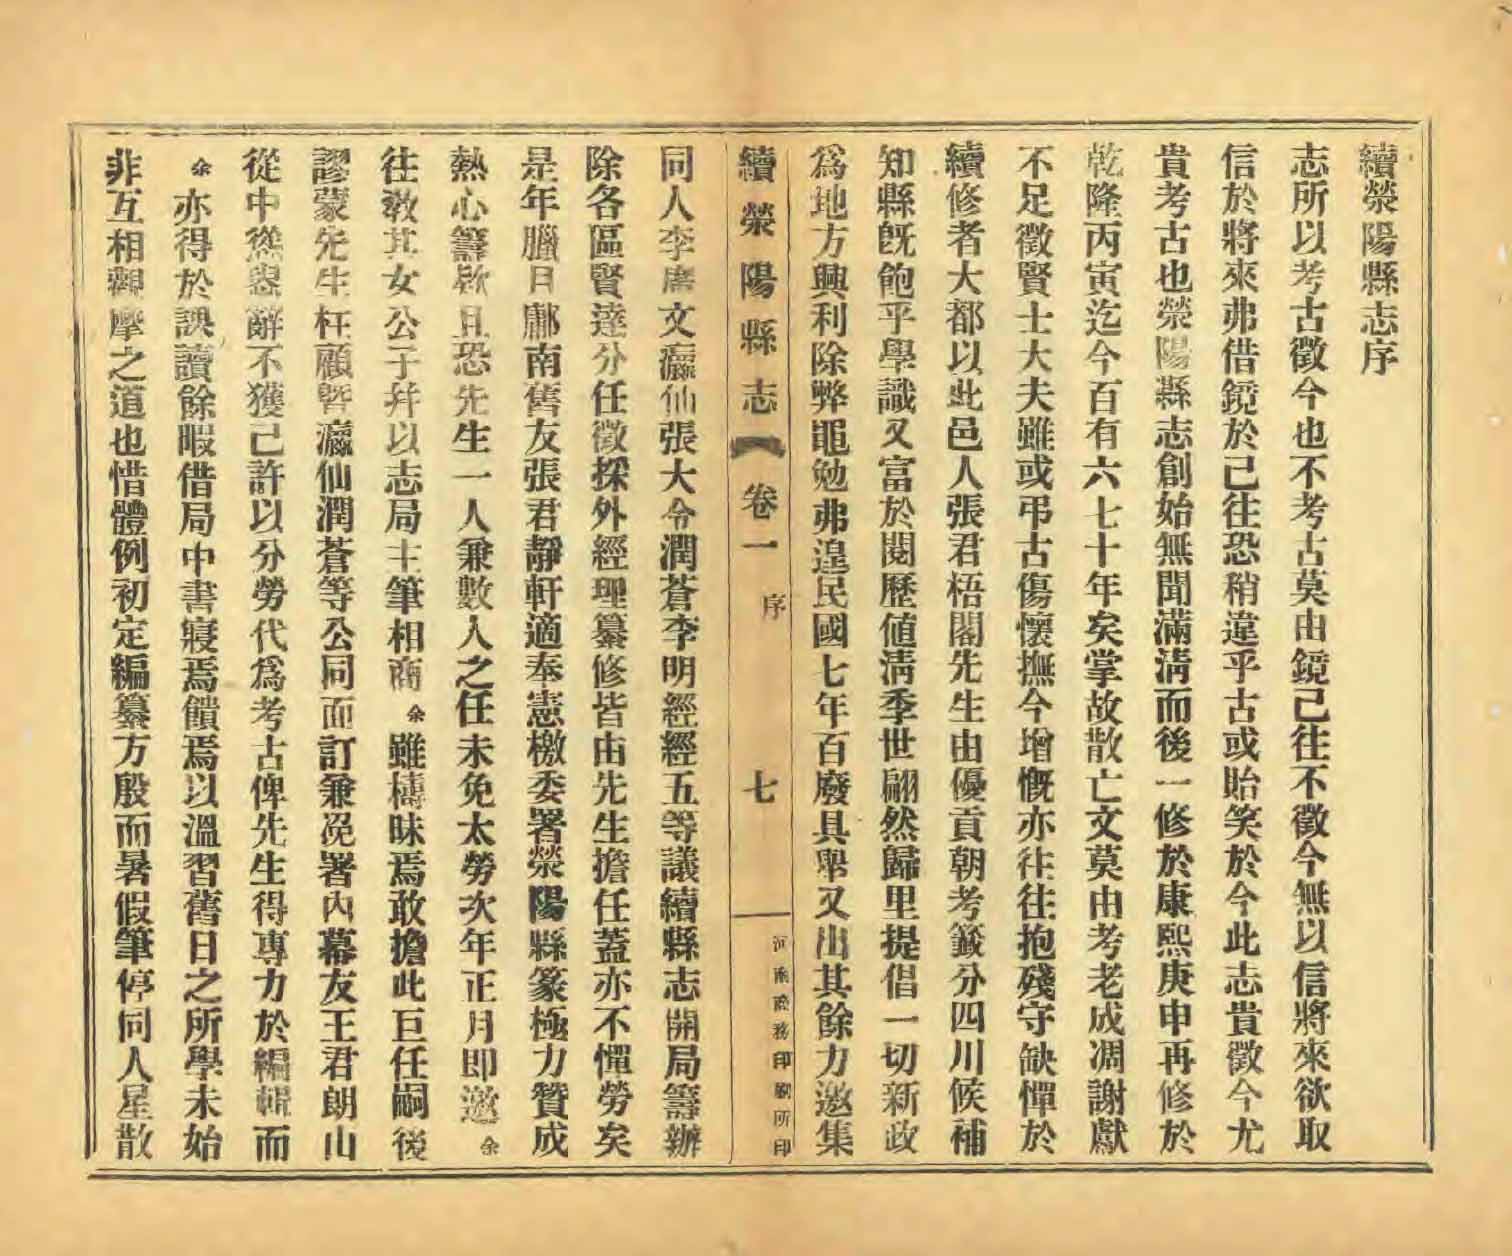 續滎陽縣志序
志所以考古徵今也不考古莫由鏡已往不徵今無以信將來欲取
信於將來弗借鏡於已往恐稍違乎古或貽笑於今此志貴徵今尤
貴考古也滎陽縣志創始無聞滿淸而後一修於康熙庚申再修於
乾隆丙寅迄今百有六七十年矣掌故散亡文莫由考老成凋謝獻
不足徵賢士大夫雖或弔古傷懷撫今增慨亦往往抱殘守缺憚於
續修者大都以此邑人張君梧閣先生由優貢朝考籤分四川候補
知縣旣飽乎學識又富於閱歷値淸季世翩然歸里提倡一切新政
爲地方興利除弊黽勉弗遑民國七年百廢具舉又出其餘力邀集
續滎陽縣志 卷一 序 七 河南商務印刷所印
同人李廣文瀛仙張大令潤蒼李明經經五等議續縣志開局籌辦
除各區賢達分任徵採外經理纂修皆由先生擔任蓋亦不憚勞矣
是年臘月鄘南舊友張君靜軒適奉憲檄委署滎陽縣篆極力贊成
熱心籌欵且恐先生一人兼數人之任未免太勞次年正月即邀余
往敎其女公子幷以志局主筆相商余雖檮昧焉敢擔此巨任嗣後
謬蒙先生枉顧暨瀛仙潤蒼等公同面訂兼浼署內幕友王君朗山
從中慫恿辭不獲已許以分勞代爲考古俾先生得專力於編輯而
余亦得於課讀餘暇借局中書寢焉饋焉以溫習舊日之所學未始
非互相觀摩之道也惜體例初定編纂方殷而暑假筆停同人星散